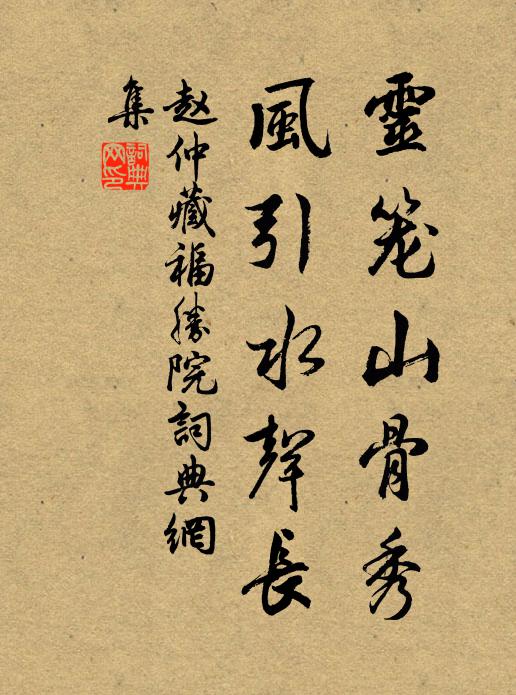 靈笼山骨秀
風引水聲長
赵仲藏福勝院詞典網
集
詞典網印